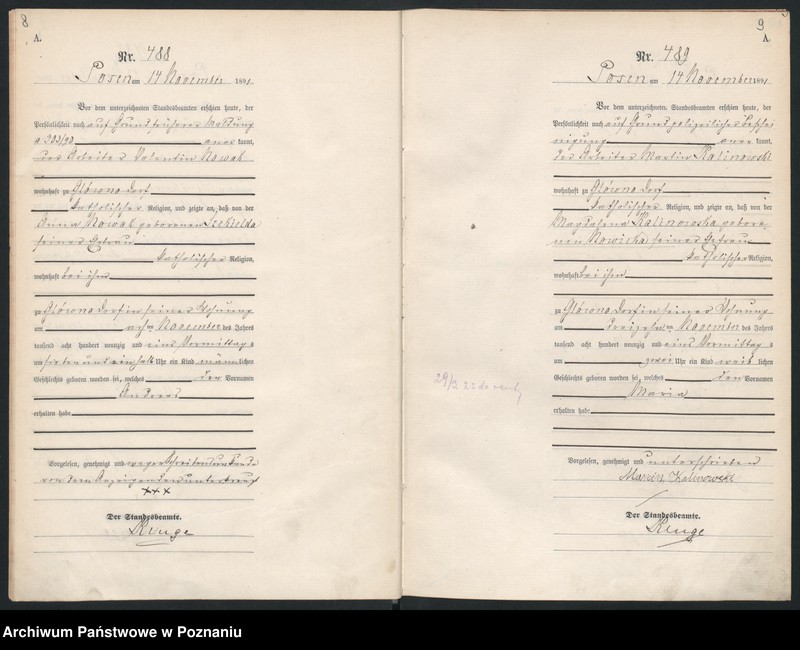 8
A.
Nr. 488
Posen am 14 November 1891.
Vor dem unterzeichneten Standesbeamten erschien heute, der
Persönlichkeit nach auf Grund früherer Meldung
a 203/90 aner kannt,
der Arbeiter Valentin Nowak
wohnhaft zu Glówno Dorf
katholischer Religion, und zeigte an, daß von der
Anna Nowak geborenen
seiner Ehefrau
katholischer Religion,
wohnhaft bei ihm
zu Glówno Dorf in seiner Wohnung
am ten November des Jahres
tausend acht hundert neunzig und eins Vormittag s
um ein halb Uhr ein Kind männ lichen
Geschlechts geboren worden sei, welches den Vornamen
Andreas
erhalten habe
Vorgelesen, genehmigt und wegen Schreibensunkunde
von dem Anzeigenden unterkreuzt
+++
Der Standesbeamte.
Runge
9
A
Nr. 489
Posen am 14 November 1891
Vor dem unterzeichneten Standesbeamten erschien heute, der
Persönlichkeit nach auf Grund polizeilicher Beschei
nigung aner kannt,
der Arbeiter Martin Kalinowski
wohnhaft zu Glówno Dorf
katholischer Religion, und zeigte an, daß von der
Magdalena Kalinowska gebore
nen Nowicka seiner Ehefrau
katholischer Religion,
wohnhaft bei ihm
zu Glówno Dorf in seiner Wohnung
am dreizehn ten November des Jahres
tausend acht hundert neunzig und eins Vormittag s
um zwei Uhr ein Kind weib lichen
Geschlechts geboren worden sei, welches den Vornamen
Maria
erhalten habe
Vorgelesen, genehmigt und unterschrieben
Marcin Kalinowski
Der Standesbeamte.
Runge
Archiwum Państwowe w Poznaniu